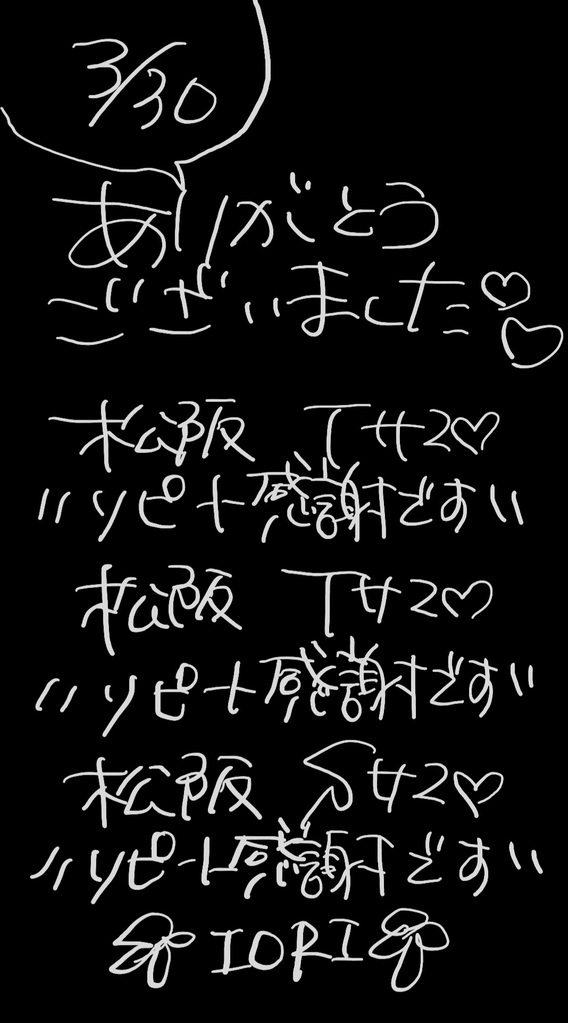 3/30
ありがとう
ございました♡♡
松阪 Tサン♡
"リピート感謝です"
松阪 Tサン♡
"リピート感謝です"
松阪 Sサン♡
"リピート感謝です"
IORI